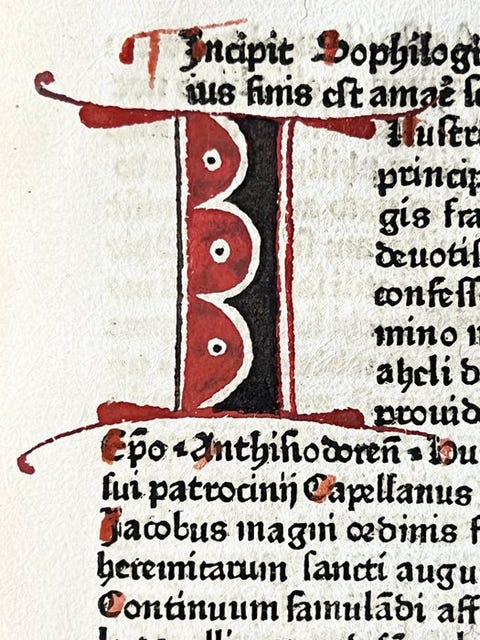 Incipit Sophilogi
ius finis est amaē
Illustri
princip
gis fra
deuotis
confess
mino m
aheli d
prouid
Ep̄o . Anthisiodoreñ . Hu
sui patrocinij Capellanus
Jacobus magni ordinis f
heremitarum sancti augu
Continuum famulādi aff